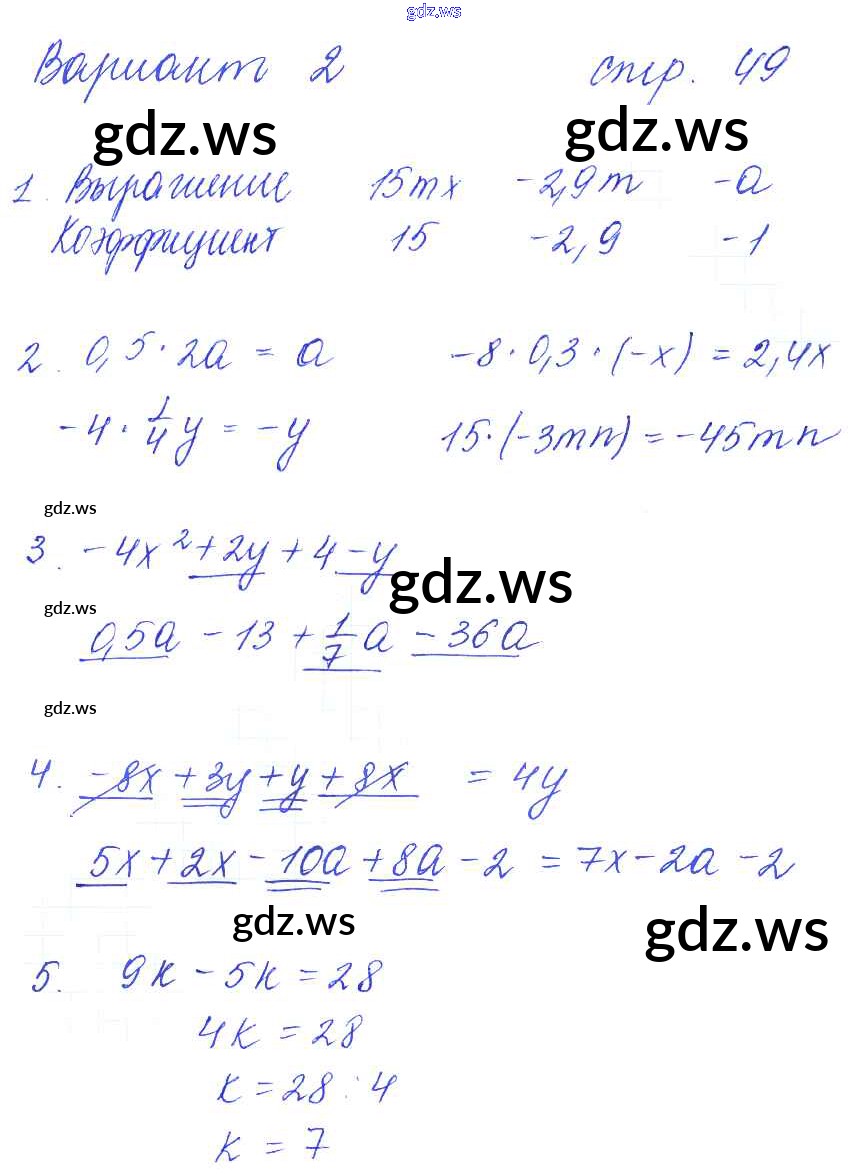 gdz.ws
Вариант 2 стр. 49
gdz.ws gdz.ws
1. Выражение 15mx -2,9m -a
Коэффициент 15 -2,9 -1
2. 0,5·2a = a -8·0,3·(-x) = 2,4x
-4·1/4y = -y 15·(-3mn) = -45mn
gdz.ws
3. -4x²+2y+4-y
gdz.ws
gdz.ws
0,5a - 13 + 1/7a - 36a
gdz.ws
4. -8x+3y+y+8x = 4y
5x+2x-10a+8a-2 = 7x-2a-2
gdz.ws gdz.ws
5. 9k - 5k = 28
4k = 28
k = 28 : 4
k = 7